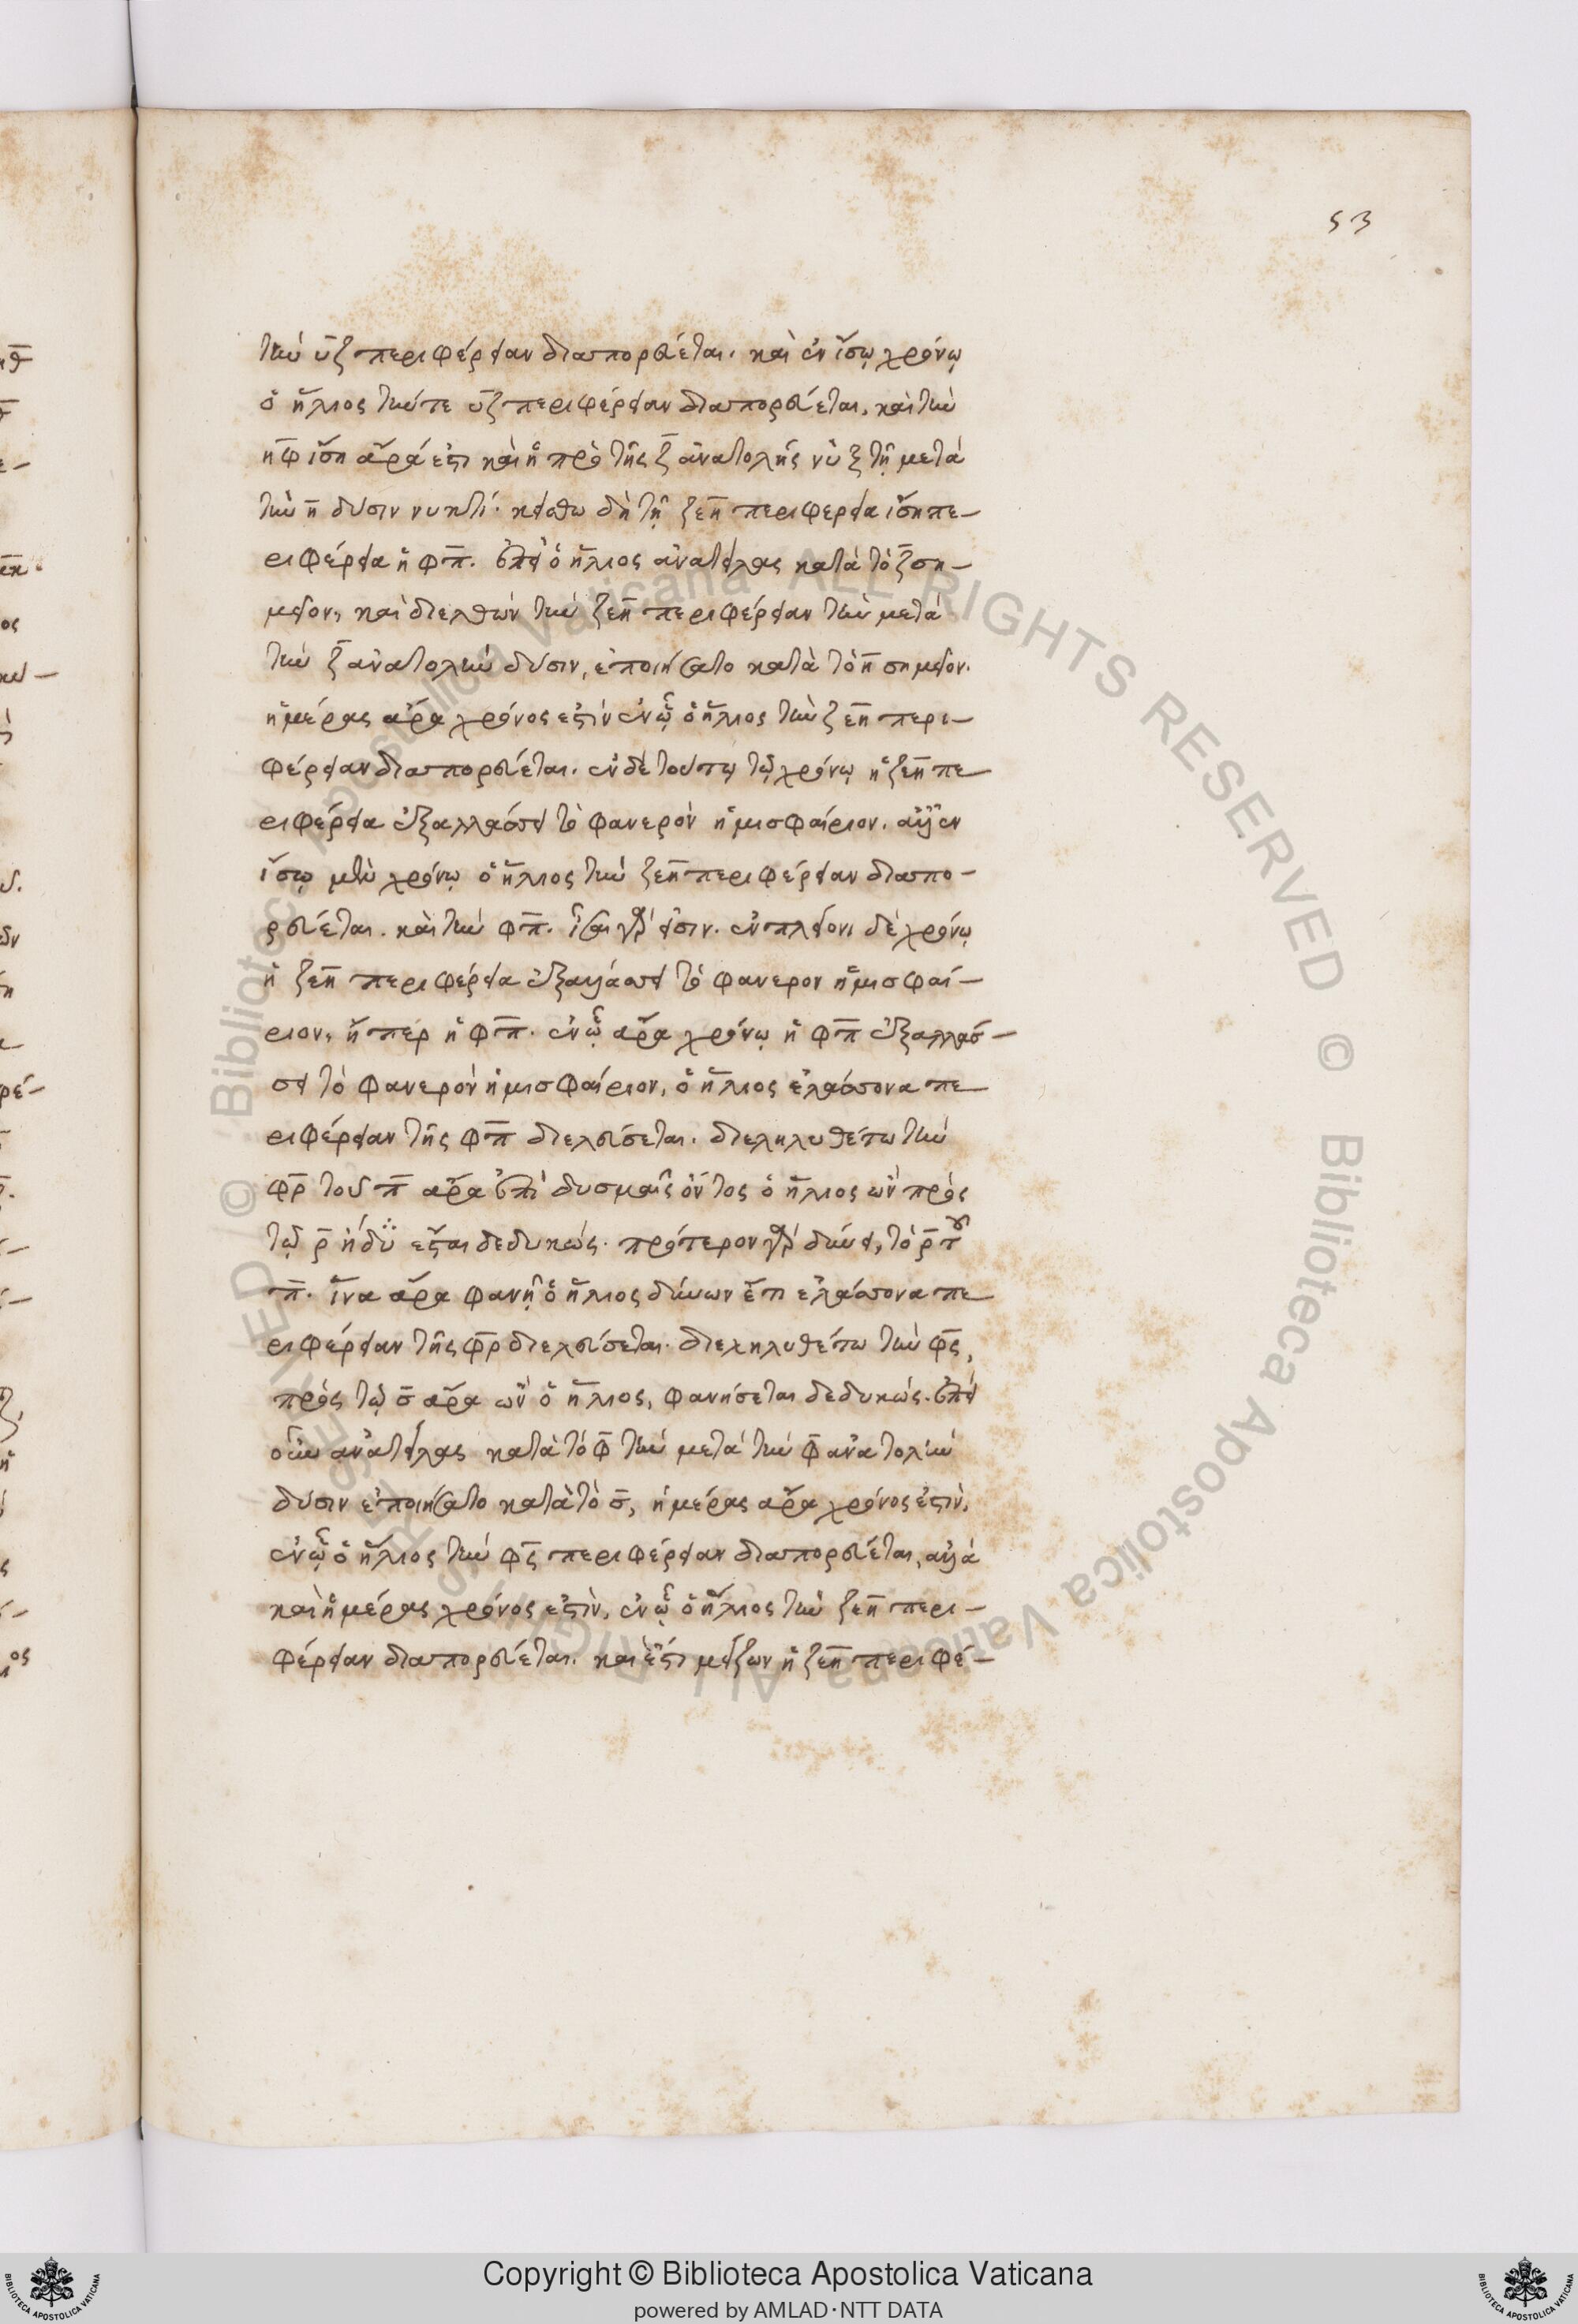 53
τὴν υ̅ζ̅ περιφέρειαν διαπορεύεται. καὶ ἐν ἴσῳ χρόνῳ
ὁ ἥλιος τήν τε υ̅ζ̅ περιφέρειαν διαπορεύεται, καὶ τὴν
η̅φ̅ ἴση ἄρα ἐστι καὶ ἡ πρὸ τῆς ζ̅ ἀνατολῆς νὺξ τῇ μετὰ
τὴν η̅ δύσιν νυκτί. κείσθω δὴ τῇ ζ̅ε̅η̅ περιφερεία ἴση πε–
ριφέρεια ἡ φ̅π̅. ἐπεὶ ὁ ἥλιος ἀνατείλας κατὰ τὸ ζ̅ ση–
μεῖον, καὶ διελθὼν τὴν ζ̅ε̅η̅ περιφέρειαν τὴν μετὰ
τὴν ζ̅ ἀνατολὴν δύσιν, ἐποιήσατο κατὰ τὸ η̅ σημεῖον.
ἡμέρας ἄρα χρόνος ἐστὶν ἐν ᾧ ὁ ἥλιος τὴν ζ̅ε̅η̅ περι–
φέρειαν διαπορεύεται. ἐν δὲ τούτῳ τῷ χρόνῳ ἡ ζ̅ε̅η̅ πε
ριφέρεια ἐξαλλάσσει τὸ φανερὸν ἡμισφαίριον. ἀλλ' ἐν
ἴσῳ μὲν χρόνῳ ὁ ἥλιος τὴν ζ̅ε̅η̅ περιφέρειαν διαπο–
ρεύεται. καὶ τὴν φ̅π̅. ἴσαι γάρ εἰσιν. ἐν πλείονι δὲ χρόνῳ
ἡ ζ̅ε̅η̅ περιφέρεια ἐξαλλάσσει τὸ φανερον ἡμισφαί–
ριον, ἤπερ ἡ φ̅π̅. ἐν ᾧ ἄρα χρόνῳ ἡ φ̅π̅ ἐξαλλάσ–
σει τὸ φανερὸν ἡμισφαίριον, ὁ ἥλιος ἐλάσσονα πε
ριφέρειαν τῆς φ̅π̅ διελεύσεται. διεληλυθέτω τὴν
φ̅ρ̅ τοῦ π̅ ἄρα ἐπὶ δυσμαῖς ὄντος ὁ ἥλιος ὢν πρὸς
τῷ ρ̅ ἤδη ἔσται δεδυκώς. πρότερον γάρ δύνει, τὸ ρ̅ τοῦ
π̅. ἵνα ἄρα φανῇ ὁ ἥλιος δύνων ἔτι ἐλάσσονα πε
ριφέρειαν τῆς φ̅ρ̅ διελεύσεται. διεληλυθέτω τὴν φ̅ς̅,
πρὸς τῷ σ̅ ἄρα ὢν ὁ ἥλιος, φανήσεται δεδυκώς. ἐπεὶ
οὖν ἀνατείλας κατὰ τὸ φ̅ τὴν μετὰ τὴν φ̅ ἀνατολὴν
δύσιν ἐποιήσατο κατὰ τὸ σ̅, ἡμέρας ἄρα χρόνος ἐστὶν,
ἐν ᾧ ὁ ἥλιος τὴν φ̅ς̅ περιφέρειαν διαπορεύεται, ἀλλὰ
καὶ ἡμέρας χρόνος ἐστὶν, ἐν ᾧ ὁ ἥλιος τὴν ζ̅ε̅η̅ περι–
φέρειαν διαπορεύεται. καὶ ἔστι μείζων ἡ ζ̅ε̅η̅ περιφέ–
Copyright © Biblioteca Apostolica Vaticana
powered by AMLAD·NTT DATA